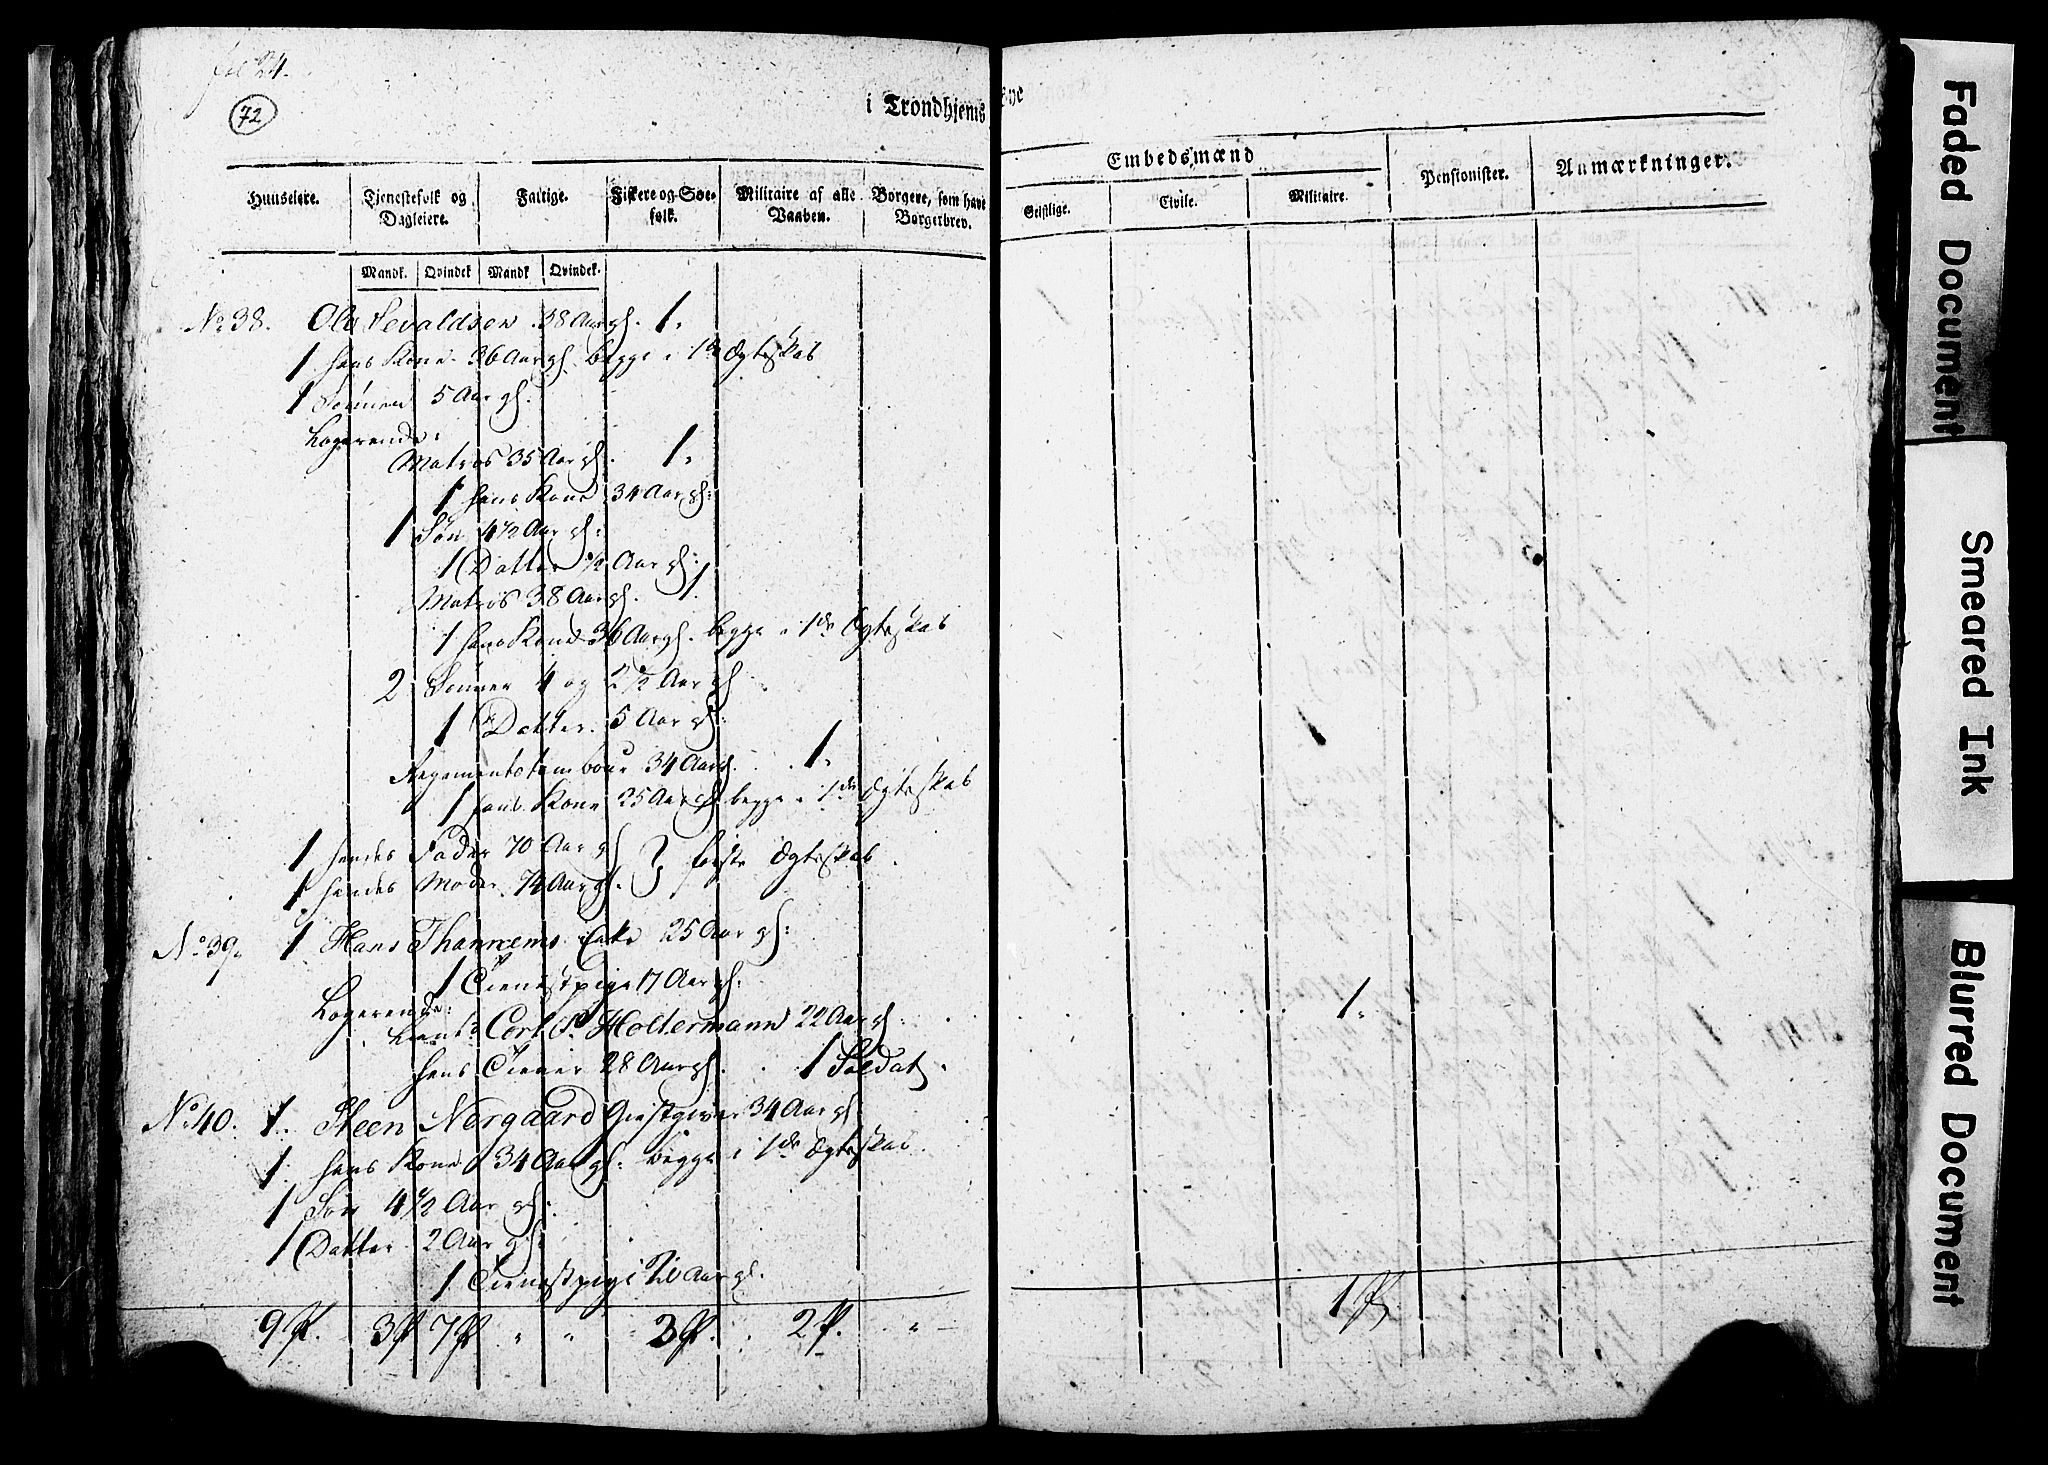 fol 24.
72
i Trondhjems Bye
Embedsmænd
Pensionister.
Anmærkninger.
Huuseiere.
Tjenestefolk og Dagleiere.
Fattige.
Fiskere og Søefolk.
Militaire af alle Vaaben.
Borgere, som have Borgerbrev.
Geistlige.
Civile.
Militaire.
Mandk. Qvindek Mandk Qvindek.
No 38. Ole Sevaldsen 38 Aar gl. 1.
1 hans Kone 36 Aar gl. begge i 1de Ægteskab
1 Sønnen 5 Aar gl.
Logerende:
Matros 35 Aar gl. 1.
1 hans Kone 34 Aar gl:
1 Søn 4 1/2 Aar gl:
1 Datter 1/2 Aar gl:
Matros 38 Aar gl. 1
1 hans Kone 36 Aar gl. begge i 1de Ægteskab
2 Sønner 4 og 2 1/2 Aar gl.
1 Datter 5 Aar gl:
Regementstambour 34 Aar gl. 1.
1 hans Kone 35 Aar gl begge i 1de Ægteskab
1 hendes Fader 70 Aar gl
1 hendes Moder 74 Aar gl. } første Ægteskab
No 39. 1 Hans Thannems Enke 25 Aar gl:
1 Tienestpige 17 Aar gl.
Logerende:
Lieutn Carl P Holtermann 22 Aar gl: 1.
hans Tiener 28 Aar gl. 1 Soldat.
No 40. 1. Steen Nørgaard Giestgiver 34 Aar gl
1 hans Kone 34 Aar gl: begge i 1de Ægteskab
1 Søn 4 1/2 Aar gl:
1 Datter 2 Aar gl:
1 Tienestpige 20 Aar gl.
9 P. 3 P 7 P " " 3 P. 2 P. " 1 P
Faded Document
Smeared Ink
Blurred Document